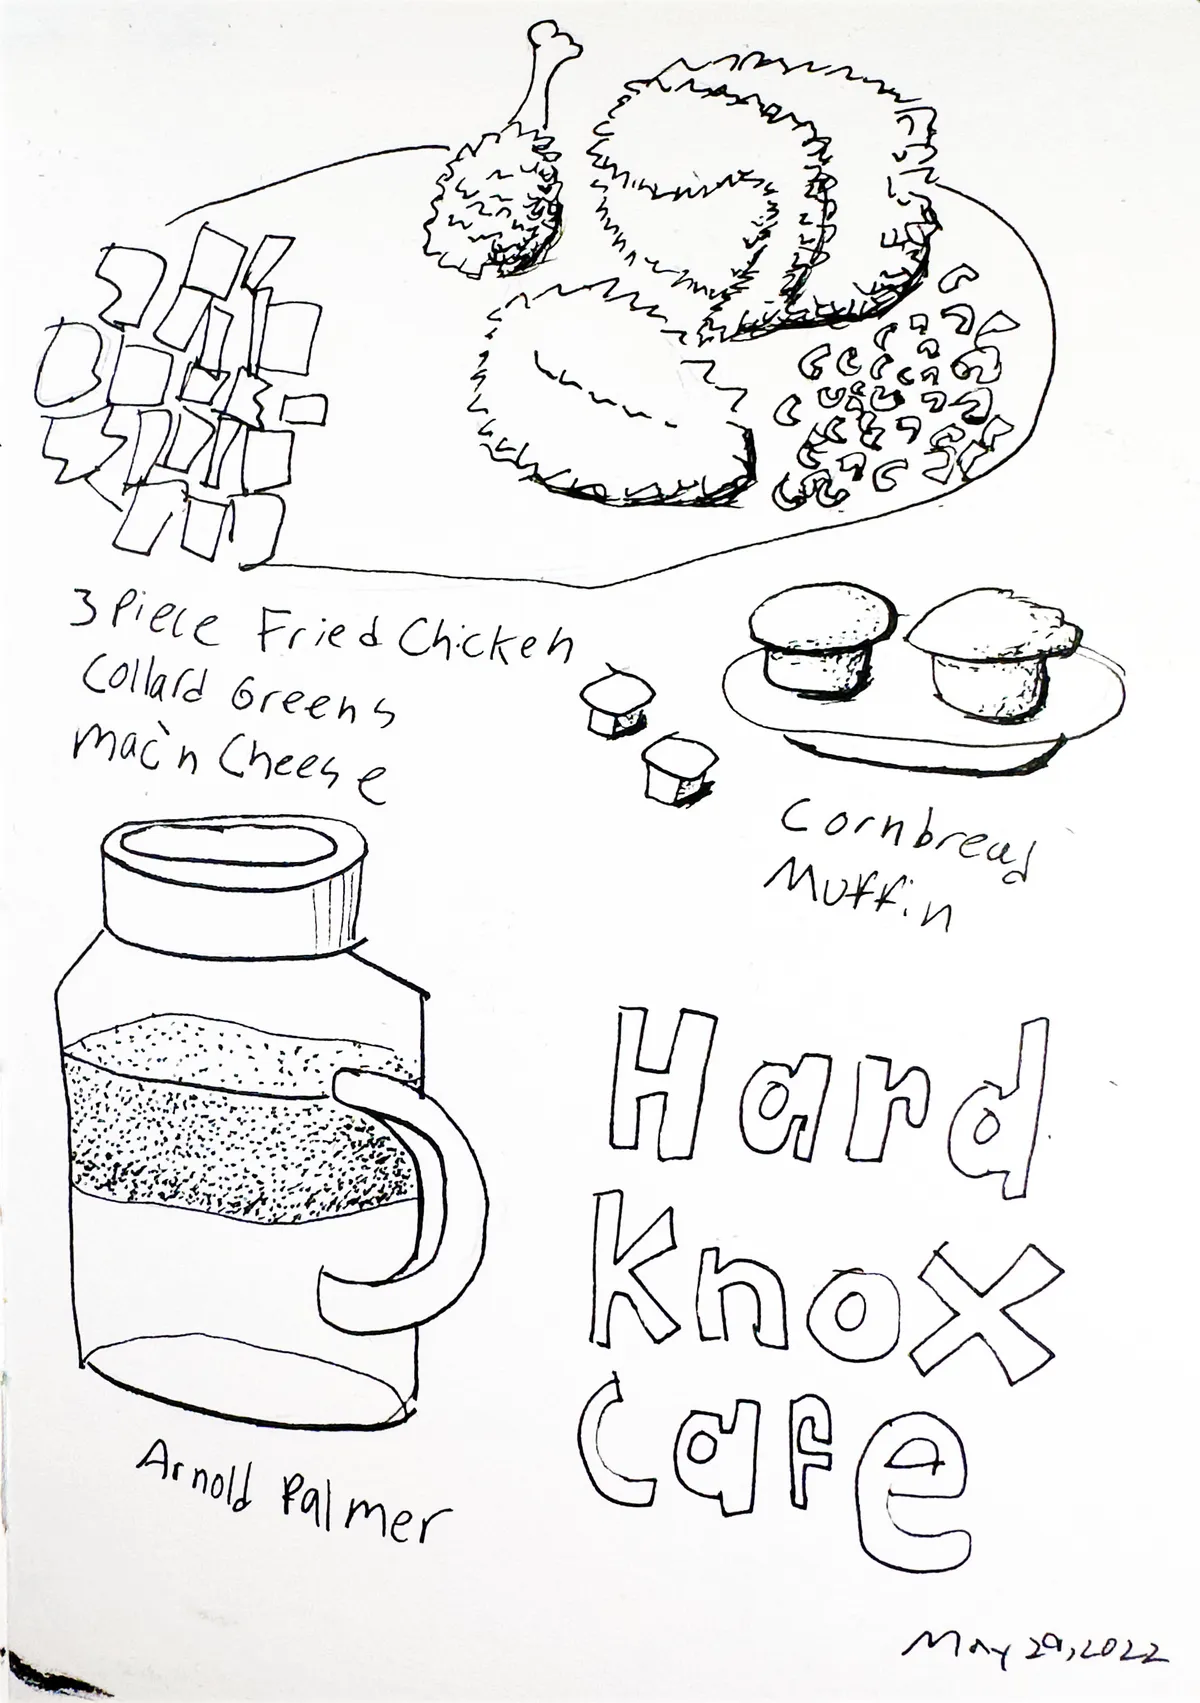 3 Piece Fried Chicken
Collard Greens
Mac'n Cheese
Cornbread
Muffin
Arnold Palmer
Hard
Knox
Cafe
May 29, 2022